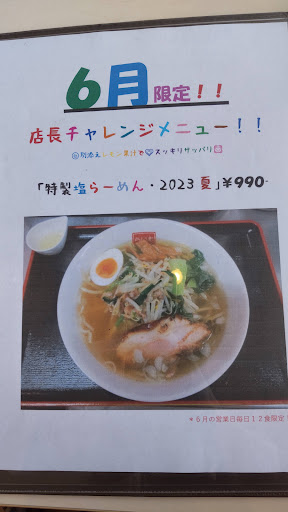 6月限定！！
店長チャレンジメニュー！！
◎別添えレモン果汁で💎スッキリサッパリ
「特製塩らーめん・2023 夏」¥990-
＊６月の営業日毎日１２食限定！